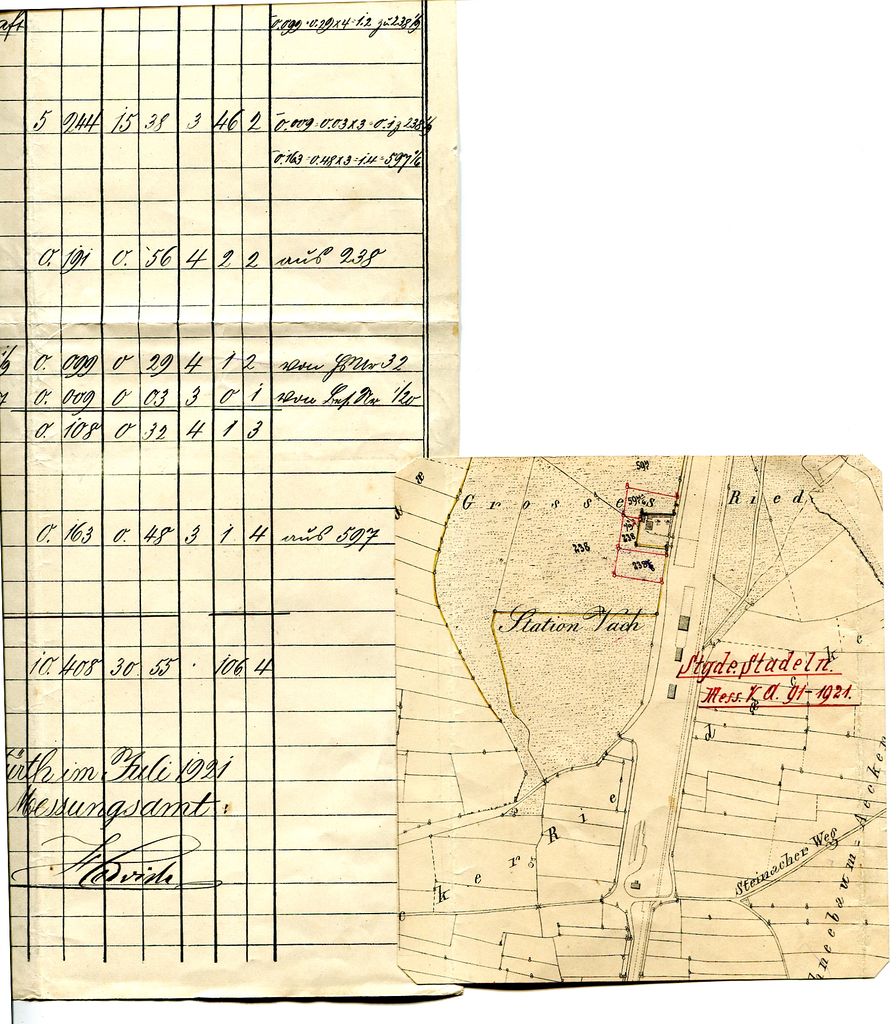 0.099 = 0.29 x 4 = 1.2 zu 238 1/9
5 944 15 38 3 46 2 0.009 = 0.03 x 3 = 0.1 z 238 1/9
0.163 = 0.48 x 3 = 1.4 = 597 1/6
0. 191 0. 56 4 2 2 aus 238
0. 099 0 29 4 1 2 von Hs Nr 32
0. 009 0 03 3 0 1 von Bes. Nr 1/20
0. 108 0 32 4 1 3
0. 163 0. 48 3 1 4 aus 597
10. 408 30 55 . 106 4
ürth im Juli 1921
Messungsamt:
597
Grosses Ried
597 1/6
238
238
Station Vach
Stgde. Stadeln.
Mess. V. A. 91-1921.
Steinacher Weg
hneebaum-Aecker